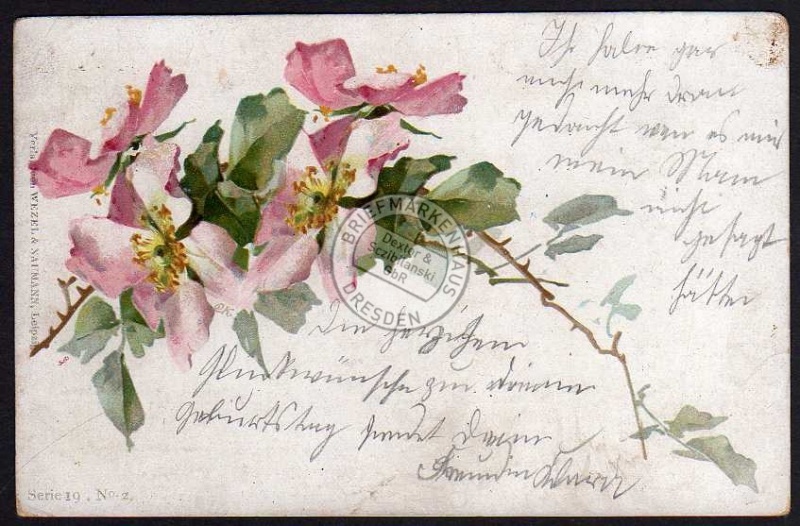 Ich habe gar
nicht mehr dran
gedacht wen es mir
mein Mann
nicht
gesagt
hätte
Die herzlichen
Glückwünsche zum deinem
Geburtstag sendet Deine
Freundin
Verlag von WEZEL & NAUMANN, Leipzig
BRIEFMARKENHAUS
Dexter &
Sczibilanski
GbR
DRESDEN
CK
Serie 19. No. 2.